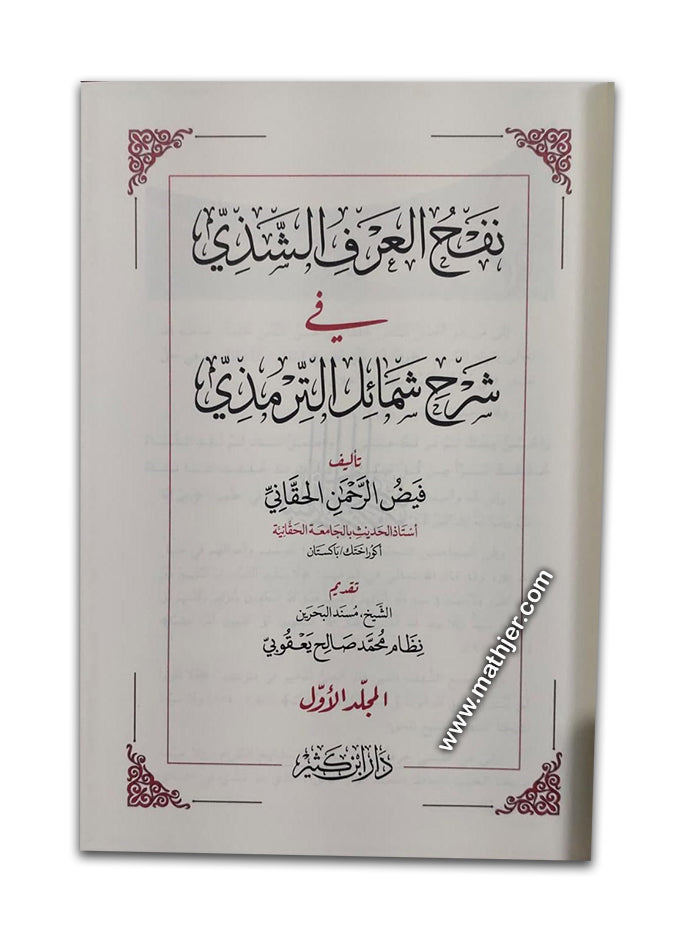 نَفْحُ العَرْفِ الشَّذِيِّ
في
شَرْحِ شَمَائِلِ التِّرْمِذِيِّ
تأليف
فَيْضُ الرَّحْمٰنِ الحقَّانِيِّ
أستاذ الحديث بالجامعة الحقانية
أكورا ختك/باكستان
تقديم
الشيخ، مسند البحرين
نظام محمّد صالح يعقوبيّ
المجلّد الأوّل
دار ابن كثير
www.mathjer.com